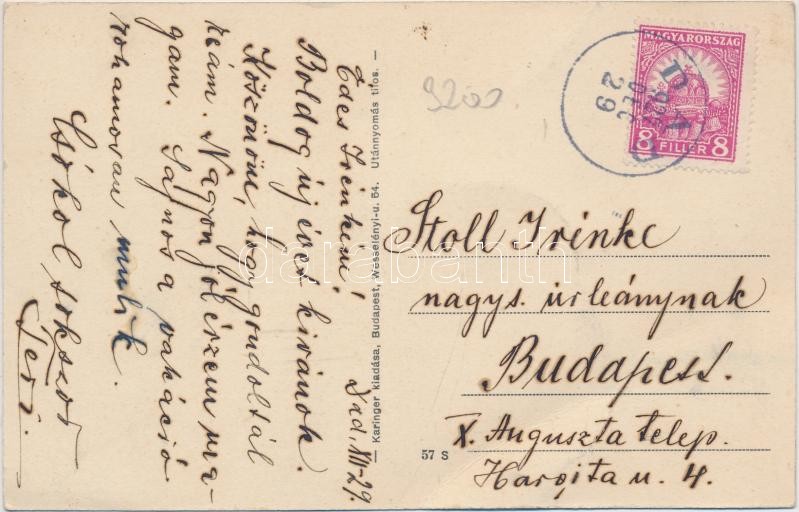 Izd, XII-29.
Édes Irénkém!
Boldog új évet kívánok.
Köszönöm, hogy gondoltál
reám. Nagyon jól érzem ma-
gam. Sajnos a vakáció
rohamosan mulik.
Csókol sokszor
Teri.
— Karinger kiadása, Budapest, Wesselényi-u. 54. Utánnyomás tilos. —
9200
MAGYARORSZÁG
8 FILLÉR 8
DEC
29
Stoll Irénke
nagys. úrleánynak
Budapest.
X. Auguszta telep.
Hargita u. 4.
57 S
darabanth